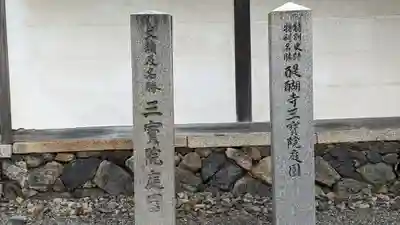 史蹟及名勝
三寳院庭園
特別史跡
特別名勝
醍醐寺三寳院庭園